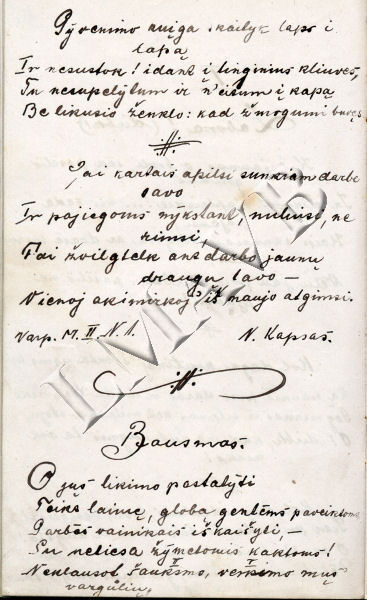 Gyvenimo knįgą skaityk laps į
lapą
Ir nesustok! idant į tinginius kliuvęs,
Tu nesupelytum ir n'eitum į kapą
Be likusio ženklo: kad žmogumi buvęs
Jai kartais apilsi sunkiam darbe
tavo
Ir pajiegoms nykstant, nuliusi, ne
rimsi,
Tai žvilgtelk ant darbo jaunų
draugų tavo —
Vienoj akimirkoj iš naujo atgimsi.
Varp. M. II N 1.
N. Kapsas.
Bausmas.
O jus likimo pastatyti
Teikt laimę, globa gentėms
Garbės vainikais iškaišyti, —
Su neliesa žymetomis kaktoms!
Neklausot šauksmo, verksmo mųs
vargulių,
LMAVB